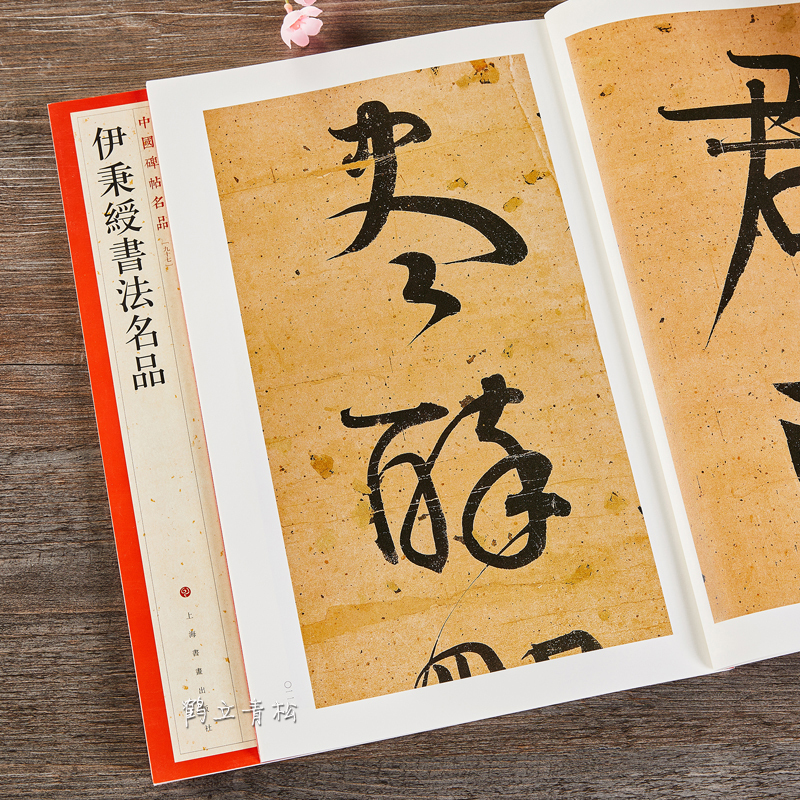 中國碑帖名品
九七
伊秉綬書法名品
上海書畫出
社
盡醉
君
鹤立青松